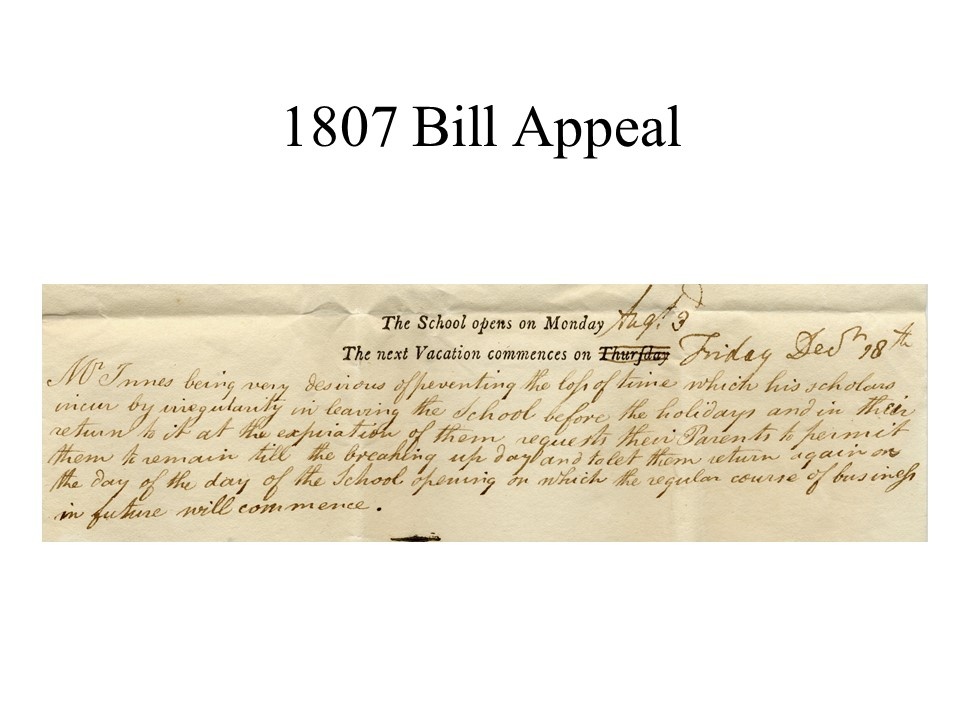 1807 Bill Appeal
The School opens on Monday Augt. 3d
The next Vacation commences on Thurſday Friday Decr 18th
Mr Innes being very desirous of preventing the loſs of time which his scholars
incur by irregularity in leaving the School before the holidays and in their
return to it at the expiration of them requests their Parents to permit
them to remain till the breaking up day and to let them return again on
the day of the day of the School opening on which the regular course of busineſs
in future will commence.